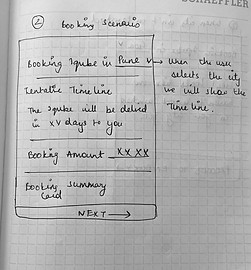 SCHAEFFLER
2 Booking Scenario
Booking Squbo in Pune v → when the user
selects the city
we will show the
Time line.
Tentative Time line
The Squbo will be delivd
in XV days to you
Booking Amount XXXX
Booking Summary
Card
NEXT →